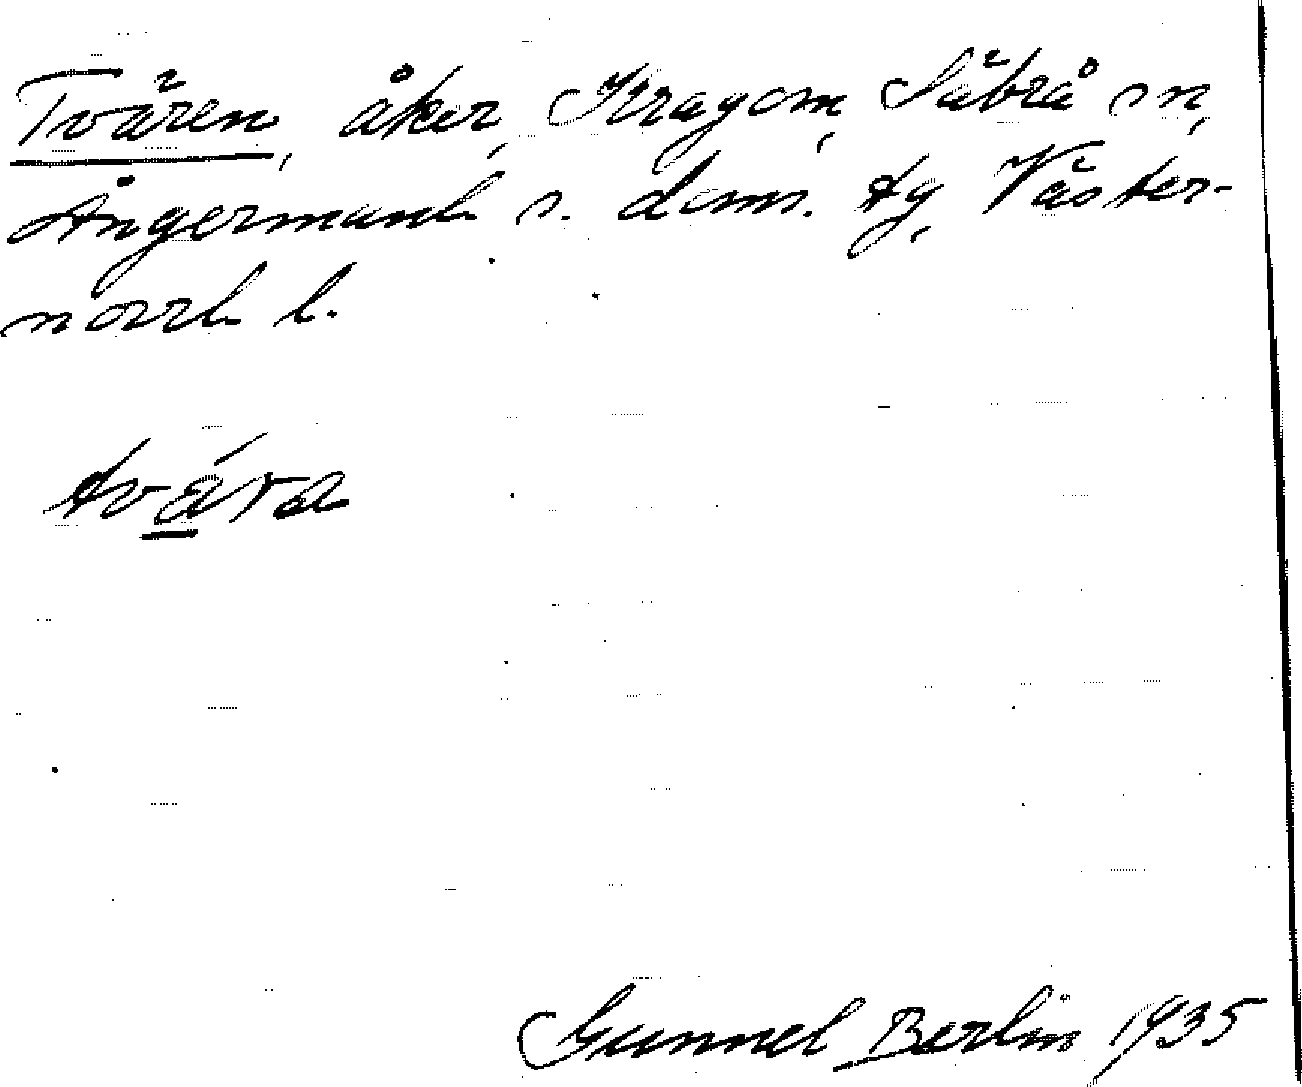 Tvären, åker, Kragom, Säbrå sn,
Ångermanl. s. doms. tg, Väster-
norrl. l.
Gunnel Berlin 1935